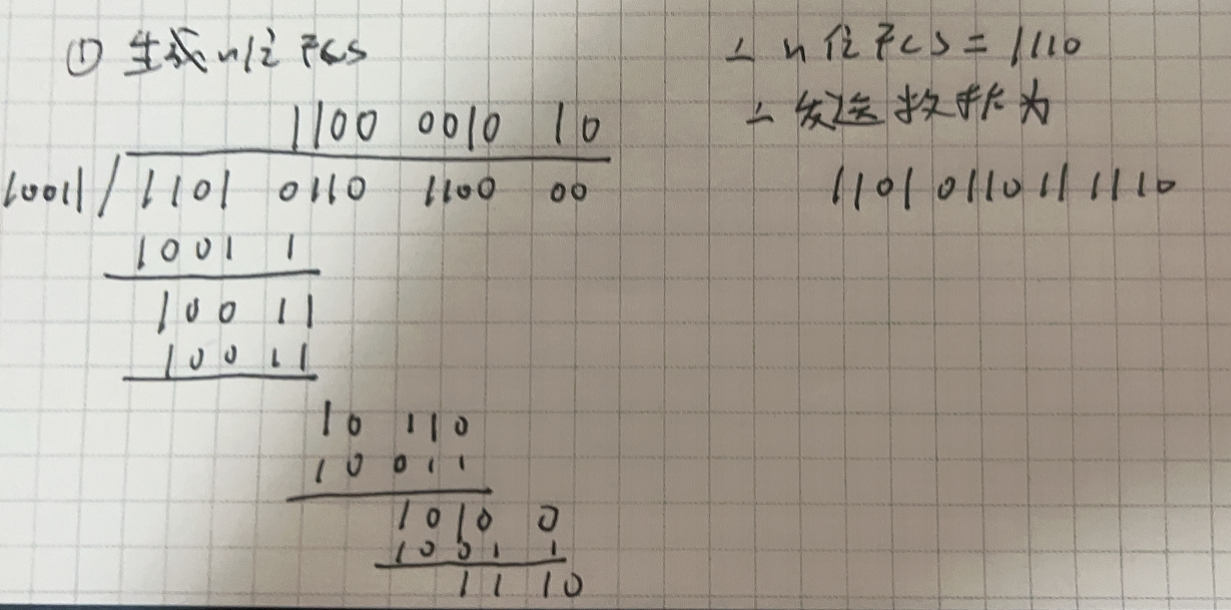 ① 生成n位FCS
1100 0010 10
10011/1101 0110 1100 00
1001 1
100 11
100 11
10 110
10 011
1010 0
1001 1
11 10
∴ n位FCS=1110
∴ 发送数据为
11010110111110